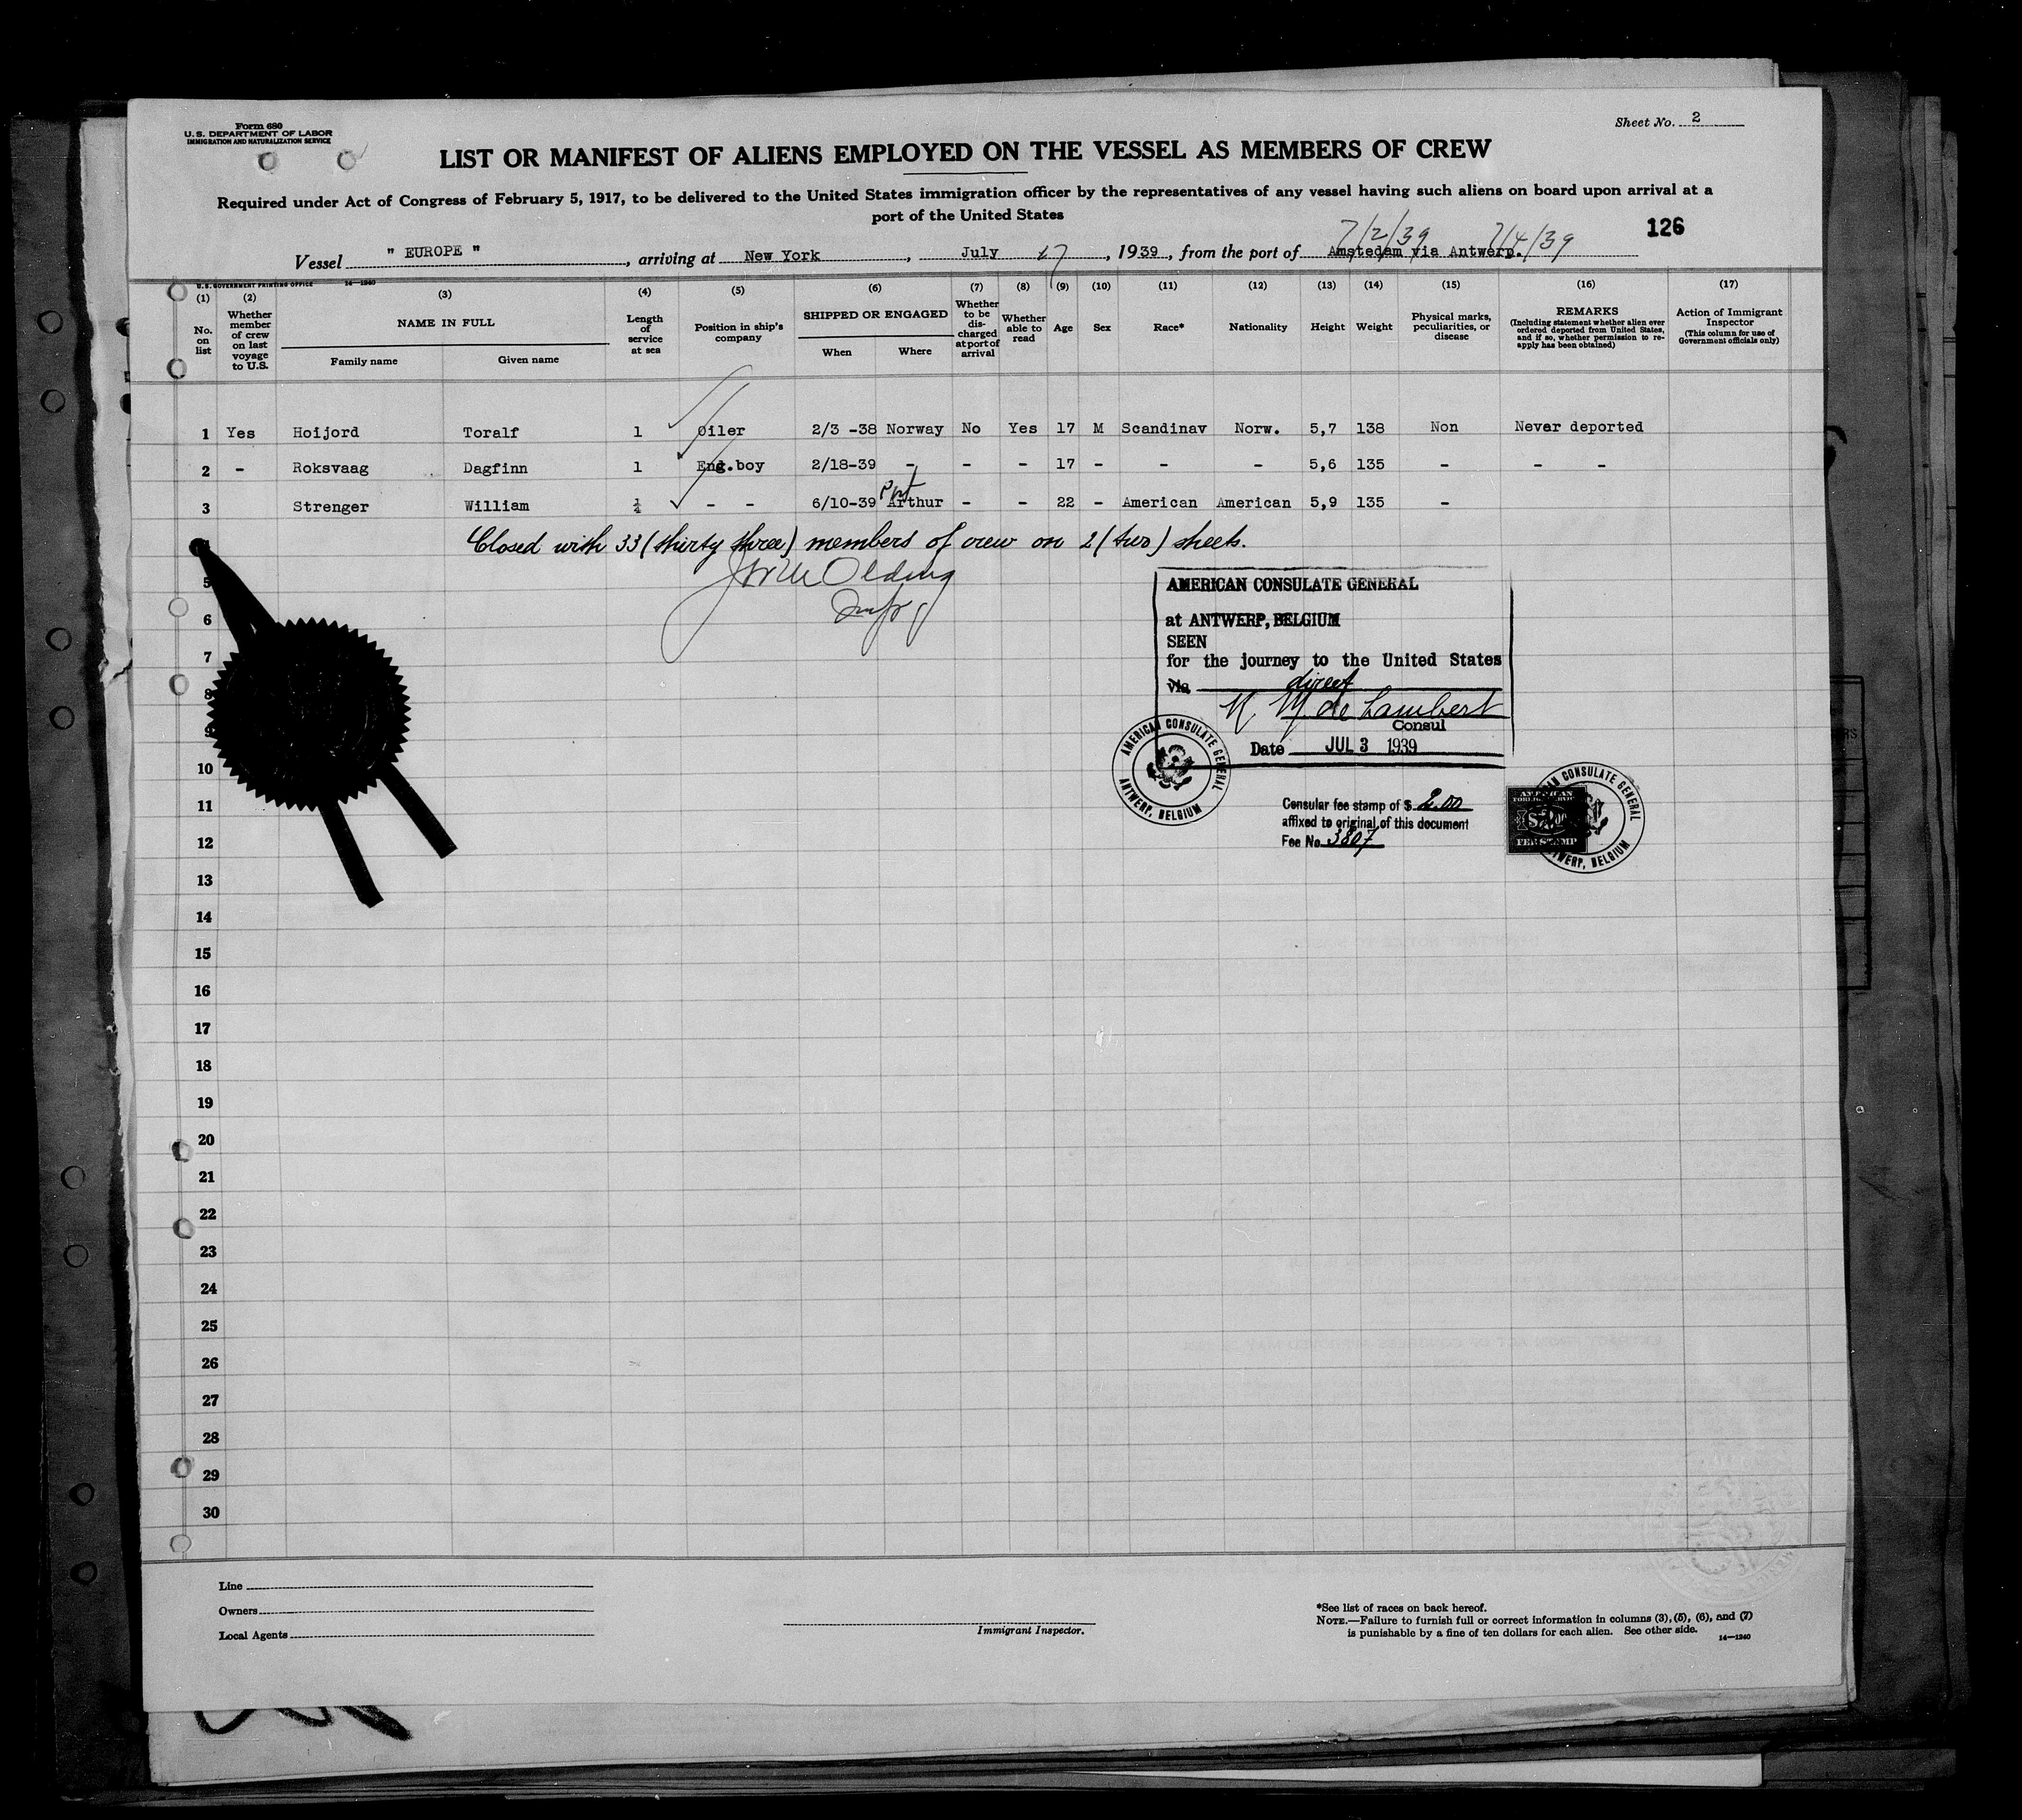 Form 680
U. S. DEPARTMENT OF LABOR
IMMIGRATION AND NATURALIZATION SERVICE
Sheet No. 2
LIST OR MANIFEST OF ALIENS EMPLOYED ON THE VESSEL AS MEMBERS OF CREW
Required under Act of Congress of February 5, 1917, to be delivered to the United States immigration officer by the representatives of any vessel having such aliens on board upon arrival at a
port of the United States
126
7/2/39 7/4/39
Vessel " EUROPE " , arriving at New York , July 17 , 1939 , from the port of Amstedam via Antwerp.
U. S. GOVERNMENT PRINTING OFFICE 14—1240
(1) (2) (3) (4) (5) (6) (7) (8) (9) (10) (11) (12) (13) (14) (15) (16) (17)
No. on list
Whether member of crew on last voyage to U.S.
NAME IN FULL
Family name
Given name
Length of service at sea
Position in ship's company
SHIPPED OR ENGAGED
When
Where
Whether to be discharged at port of arrival
Whether able to read
Age
Sex
Race*
Nationality
Height
Weight
Physical marks, peculiarities, or disease
REMARKS
(Including statement whether alien ever ordered deported from United States, and if so, whether permission to reapply has been obtained)
Action of Immigrant Inspector
(This column for use of Government officials only)
1 Yes Hoijord Toralf 1 Oiler 2/3 -38 Norway No Yes 17 M Scandinav Norw. 5,7 138 Non Never deported
2 - Roksvaag Dagfinn 1 Eng.boy 2/18-39 - - - 17 - - - 5,6 135 - - -
3 Strenger William ¼ - - 6/10-39 Port Arthur - - 22 - American American 5,9 135 -
Closed with 33 (thirty three) members of crew on 2 (two) sheets.
5
6
7
8
9
10
11
12
13
14
15
16
17
18
19
20
21
22
23
24
25
26
27
28
29
30
AMERICAN CONSULATE GENERAL
at ANTWERP, BELGIUM
SEEN
for the journey to the United States
via direct
de Lambert
Consul
Date JUL 3 1939
AMERICAN CONSULATE GENERAL
ANTWERP, BELGIUM
Consular fee stamp of $ 2.00
affixed to original of this document
Fee No. 3807
AMERICAN
FEE STAMP
CONSULATE GENERAL
ANTWERP, BELGIUM
Line
Owners
Local Agents
Immigrant Inspector.
*See list of races on back hereof.
NOTE.—Failure to furnish full or correct information in columns (3), (5), (6), and (7)
is punishable by a fine of ten dollars for each alien. See other side.
14—1240